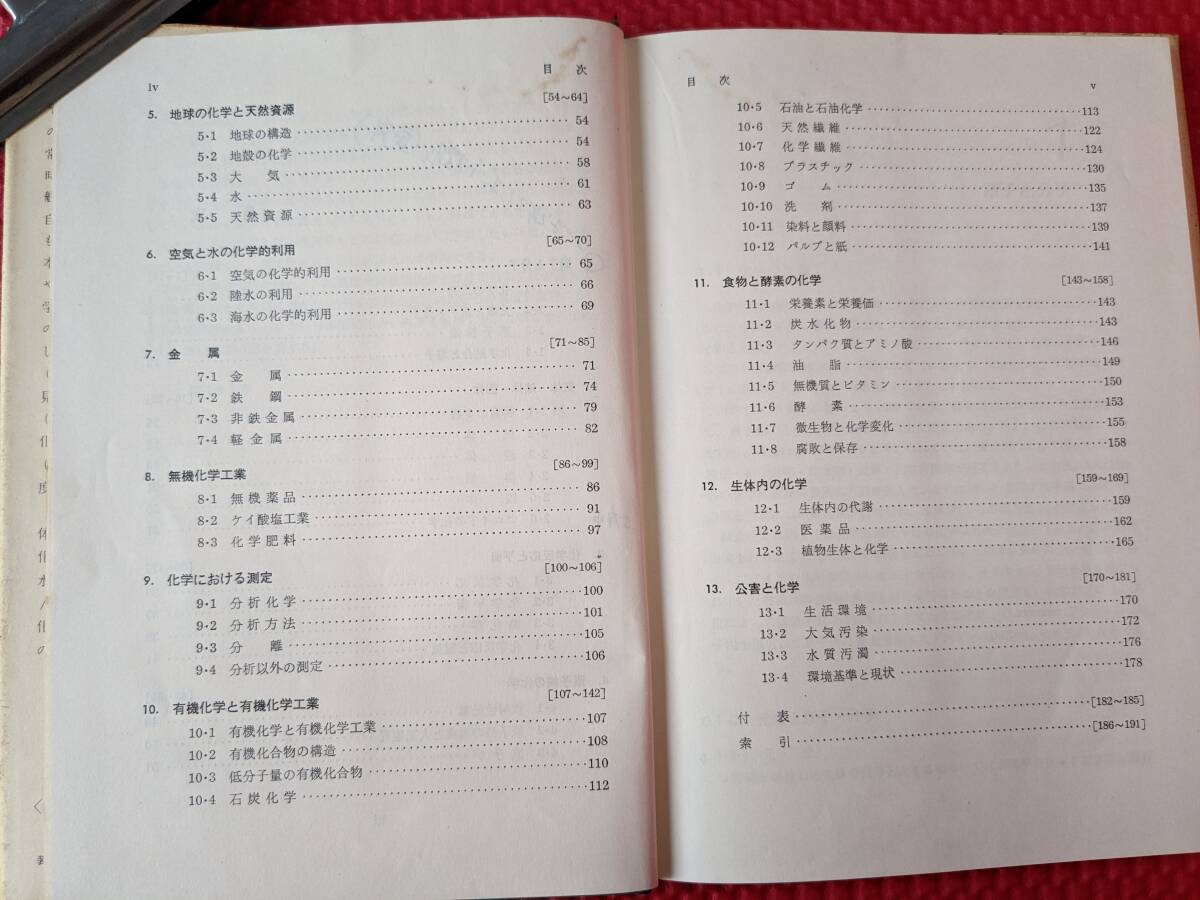 iv
目 次
5. 地球の化学と天然資源 [54~64]
5・1 地球の構造 54
5・2 地殻の化学 54
5・3 大 気 58
5・4 水 61
5・5 天然資源 63
6. 空気と水の化学的利用 [65~70]
6・1 空気の化学的利用 65
6・2 陸水の利用 66
6・3 海水の化学的利用 69
7. 金 属 [71~85]
7・1 金 属 71
7・2 鉄 鋼 74
7・3 非鉄金属 79
7・4 軽金属 82
8. 無機化学工業 [86~99]
8・1 無機薬品 86
8・2 ケイ酸塩工業 91
8・3 化学肥料 97
9. 化学における測定 [100~106]
9・1 分析化学 100
9・2 分析方法 101
9・3 分 離 105
9・4 分析以外の測定 106
10. 有機化学と有機化学工業 [107~142]
10・1 有機化学と有機化学工業 107
10・2 有機化合物の構造 108
10・3 低分子量の有機化合物 110
10・4 石炭化学 112
目 次
v
10・5 石油と石油化学 113
10・6 天然繊維 122
10・7 化学繊維 124
10・8 プラスチック 130
10・9 ゴ ム 135
10・10 洗 剤 137
10・11 染料と顔料 139
10・12 パルプと紙 141
11. 食物と酵素の化学 [143~158]
11・1 栄養素と栄養価 143
11・2 炭水化物 143
11・3 タンパク質とアミノ酸 146
11・4 油 脂 149
11・5 無機質とビタミン 150
11・6 酵 素 153
11・7 微生物と化学変化 155
11・8 腐敗と保存 158
12. 生体内の化学 [159~169]
12・1 生体内の代謝 159
12・2 医薬品 162
12・3 植物生体と化学 165
13. 公害と化学 [170~181]
13・1 生活環境 170
13・2 大気汚染 172
13・3 水質汚濁 176
13・4 環境基準と現状 178
付 表 [182~185]
索 引 [186~191]